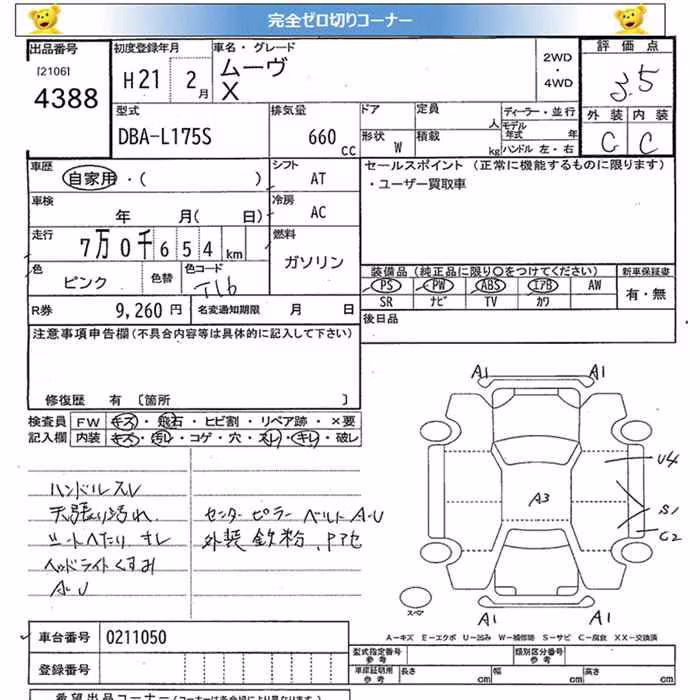 完全ゼロ切りコーナー
出品番号 初度登録年月 車名・グレード 評価点
[2106] 4388 H21 2月 ムーヴ X 2WD・4WD 3.5
外装 内装
C C
型式 排気量 ドア 定員 人 ディーラー・並行
DBA-L175S 660 cc 形状 W 積載 kg モデル年式 年
ハンドル 左・右
車歴 シフト セールスポイント (正常に機能するものに限ります)
自家用・( ) AT ・ユーザー買取車
車検 冷房
年 月( 日) AC
走行 燃料
7万0千654km ガソリン
色 色替 色コード 装備品(純正品に限り○をつけてください) 新車保証書
ピンク T16 PS PW ABS エアB AW 有・無
SR ナビ TV カワ
R券 9,260円 名変通知期限 月 日 後日品
注意事項申告欄(不具合内容等は具体的に記入して下さい)
修復歴 有 [箇所 ]
検査員 FW キズ・飛石・ヒビ割・リペア跡・×要
記入欄 内装 キズ・汚れ・コゲ・穴・スレ・キレ・破レ
ハンドルスレ
天張り汚れ
シートヘたり、キレ
ヘッドライトくすみ
A・U
センターピラー ベルト A・U
外装 鉄粉、Pアセ
A1 A1
U4
A3
S1
C2
スペア
A1 A1
A-キズ E-エクボ U-凹み W-補修跡 S-サビ C-腐食 XX-交換済
車台番号 0211050
登録番号
型式指定番号 参考 類別区分番号 参考
車庫証明用 参考 長さ cm 幅 cm 高さ cm
希望出品コーナー